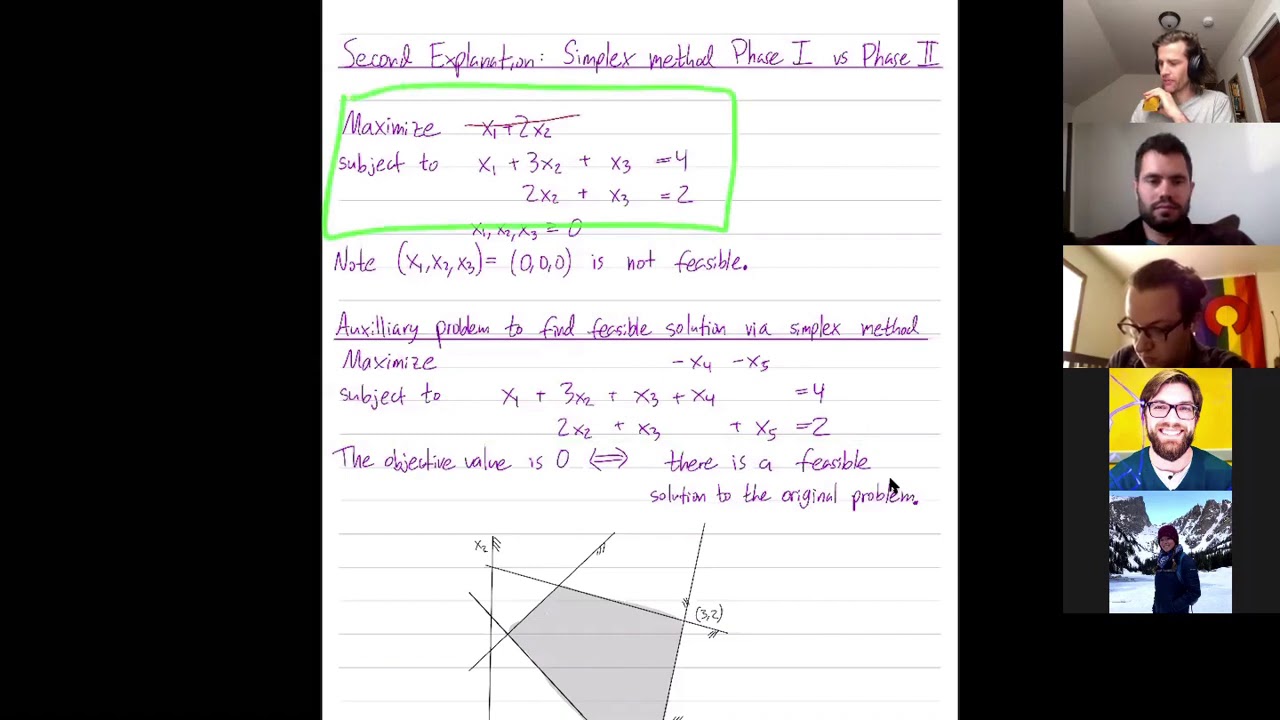 Second Explanation: Simplex method Phase I vs Phase II
Maximize x₁+2x₂
subject to x₁ + 3x₂ + x₃ =4
2x₂ + x₃ =2
x₁,x₂,x₃ = 0
Note (x₁,x₂,x₃)= (0,0,0) is not feasible.
Auxilliary problem to find feasible solution via simplex method
Maximize -x₄ -x₅
subject to x₁ + 3x₂ + x₃ + x₄ =4
2x₂ + x₃ + x₅ =2
The objective value is 0 ⟺ there is a feasible
solution to the original problem.
x₂
(3,2)